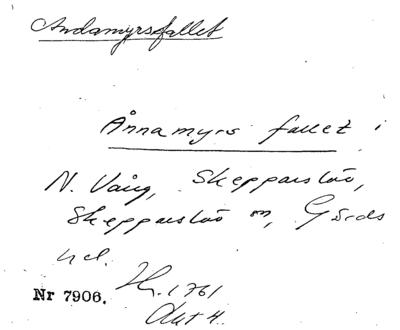 Andamyrsfallet
Ånnamyrs fallet i
N. Vång, Skepparslöv,
Skepparslöv sn, Gärds
hd.
Nr 7906. Hr. 1761
Akt 4.